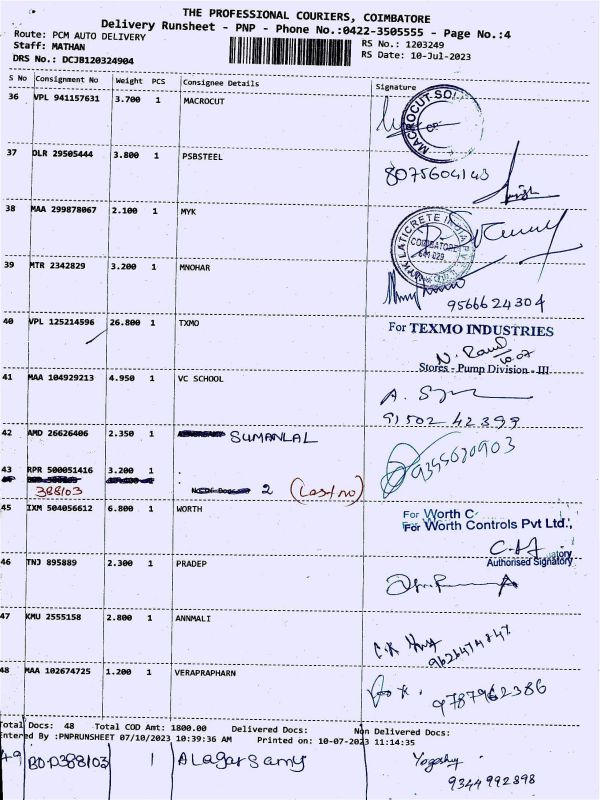 THE PROFESSIONAL COURIERS, COIMBATORE
Delivery Runsheet - PNP - Phone No.:0422-3505555 - Page No.:4
Route: PCM AUTO DELIVERY
RS No.: 1203249
Staff: MATHAN
RS Date: 10-Jul-2023
DRS No.: DCJB120324904
S No Consignment No Weight PCS Consignee Details Signature
36 VPL 941157631 3.700 1 MACROCUT
37 DLR 29505444 3.800 1 PSBSTEEL
8075604143
38 MAA 299878067 2.100 1 MYK
COIMBATORE
39 MTR 2342829 3.200 1 MNOHAR
9566624304
40 VPL 125214596 26.800 1 TXMO
For TEXMO INDUSTRIES
Stores - Pump Division - III
41 MAA 104929213 4.950 1 VC SCHOOL
91502 42399
42 AMD 26626406 2.350 1 SUMANLAL
43 RPR 500051416 3.200 1
9355020903
388103 2 (Last no)
45 IXM 504056612 6.800 1 WORTH
For Worth C
For Worth Controls Pvt Ltd.,
Authorised Signatory
46 TNJ 895889 2.300 1 PRADEP
47 KMU 2555158 2.800 1 ANNMALI
48 MAA 102674725 1.200 1 VERAPRAPHARN
9787962386
Total Docs: 48 Total COD Amt: 1800.00 Delivered Docs: Non Delivered Docs:
Entered By :PNPRUNSHEET 07/10/2023 10:39:36 AM Printed on: 10-07-2023 11:14:35
49 BOP388103 1 Alagarsamy
9344992898